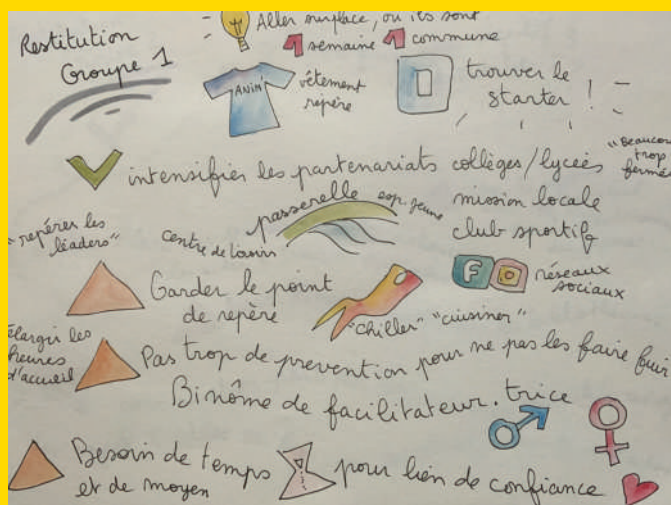 Restitution
Groupe 1
Aller sur place, où ils sont
1 semaine 1 commune
ANIM'
vêtement
repère
trouver le
starter !
intensifier les partenariats collèges/lycées
"Beaucoup
trop
fermé
passerelle
esp. jeune
centre de loisirs
mission locale
club sportif
"repérer les
leaders"
Garder le point
de repère
"chiller" "cuisiner"
réseaux
sociaux
élargir les
heures
d'accueil
Pas trop de prevention pour ne pas les faire fuir
Binôme de facilitateur.trice
Besoin de temps
et de moyen
pour lien de confiance